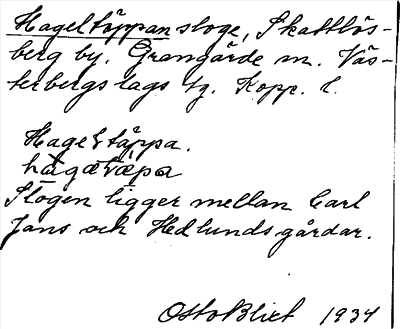 Hageltäppan stoge, Skattlös-
berg by, Grangärde sn. Väs-
terbergslags tg. Kopp. l.
Hageltäppa.
Stogen ligger mellan Carl
Jans och Hedlunds gårdar.
Otto Blixt 1934